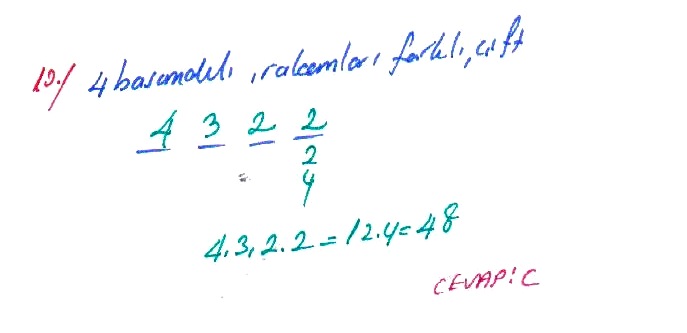 19./ 4 basamaklı, rakamları farklı, çift
4 3 2 2
2
4
4.3.2.2 = 12.4 = 48
CEVAP: C